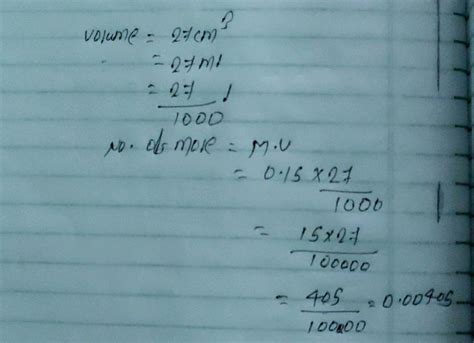 volume = 27cm³
= 27ml
= 27/1000 l
No. of mole = M.V
= 0.15 × 27/1000
= 15×27/100000
= 405/100000 = 0.00405